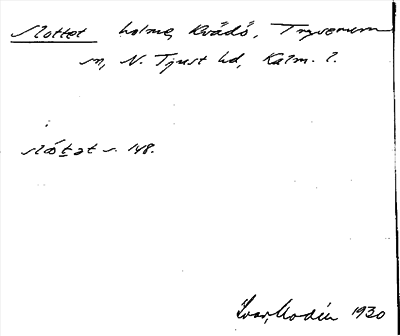 Slottet holme, Kvädö, Tryserum
sn, N. Tjust hd, Kalm. l.
slót̲ət s. 148.
Ivar Modéer 1930